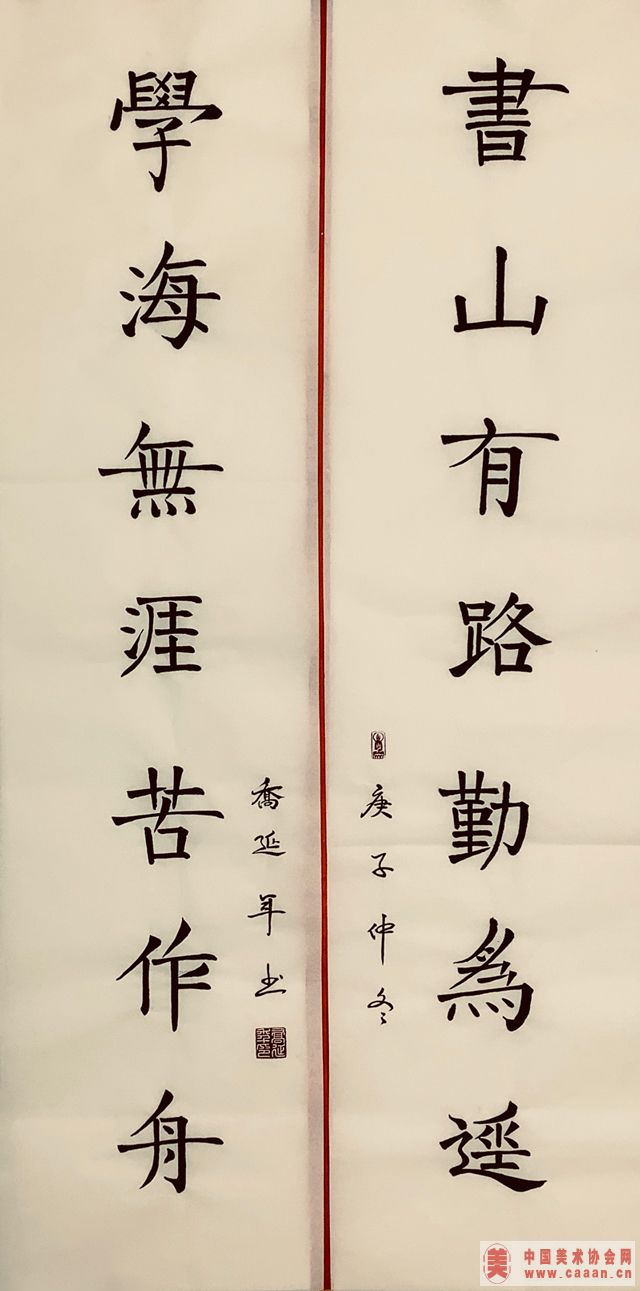 書山有路勤為逕
庚子仲冬
學海無涯苦作舟
喬延年书
中国美术协会网
www.caaan.cn